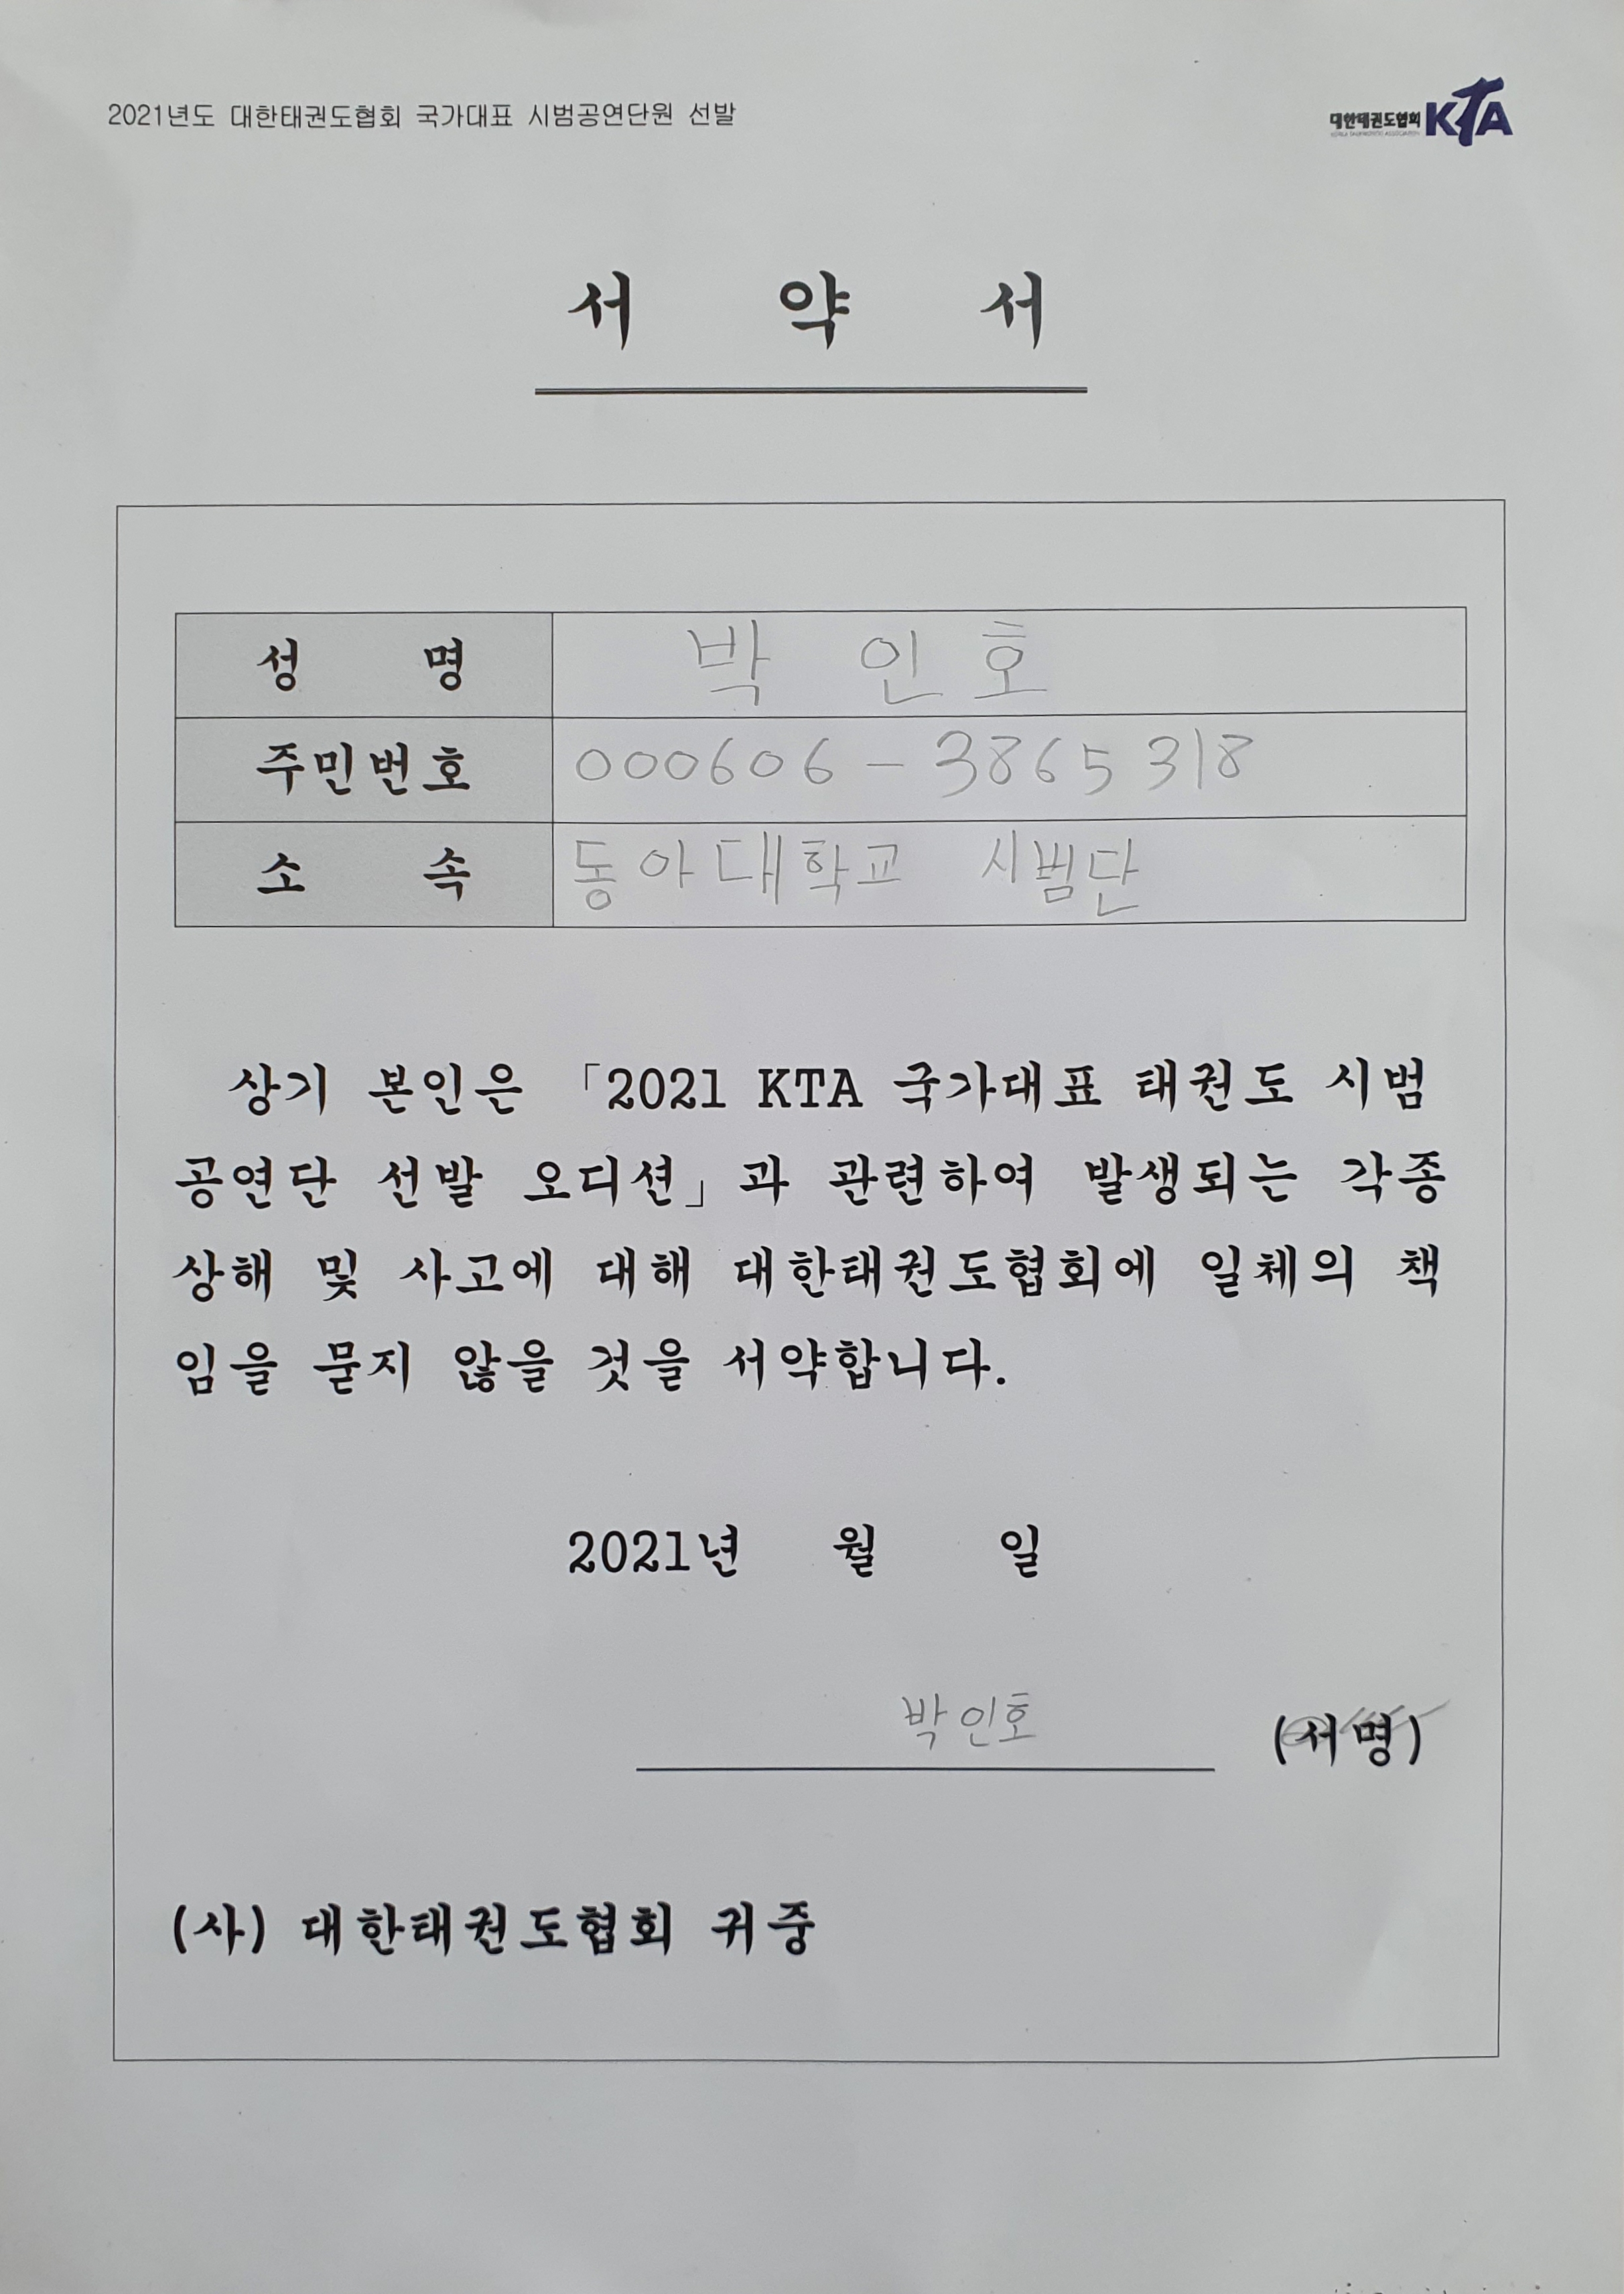 2021년도 대한태권도협회 국가대표 시범공연단원 선발
대한태권도협회 KTA
서 약 서
성 명 박 인 호
주민번호 000606-3865318
소 속 동아대학교 시범단
상기 본인은 「2021 KTA 국가대표 태권도 시범
공연단 선발 오디션」과 관련하여 발생되는 각종
상해 및 사고에 대해 대한태권도협회에 일체의 책
임을 묻지 않을 것을 서약합니다.
2021년 월 일
박인호 (서명)
(사) 대한태권도협회 귀중